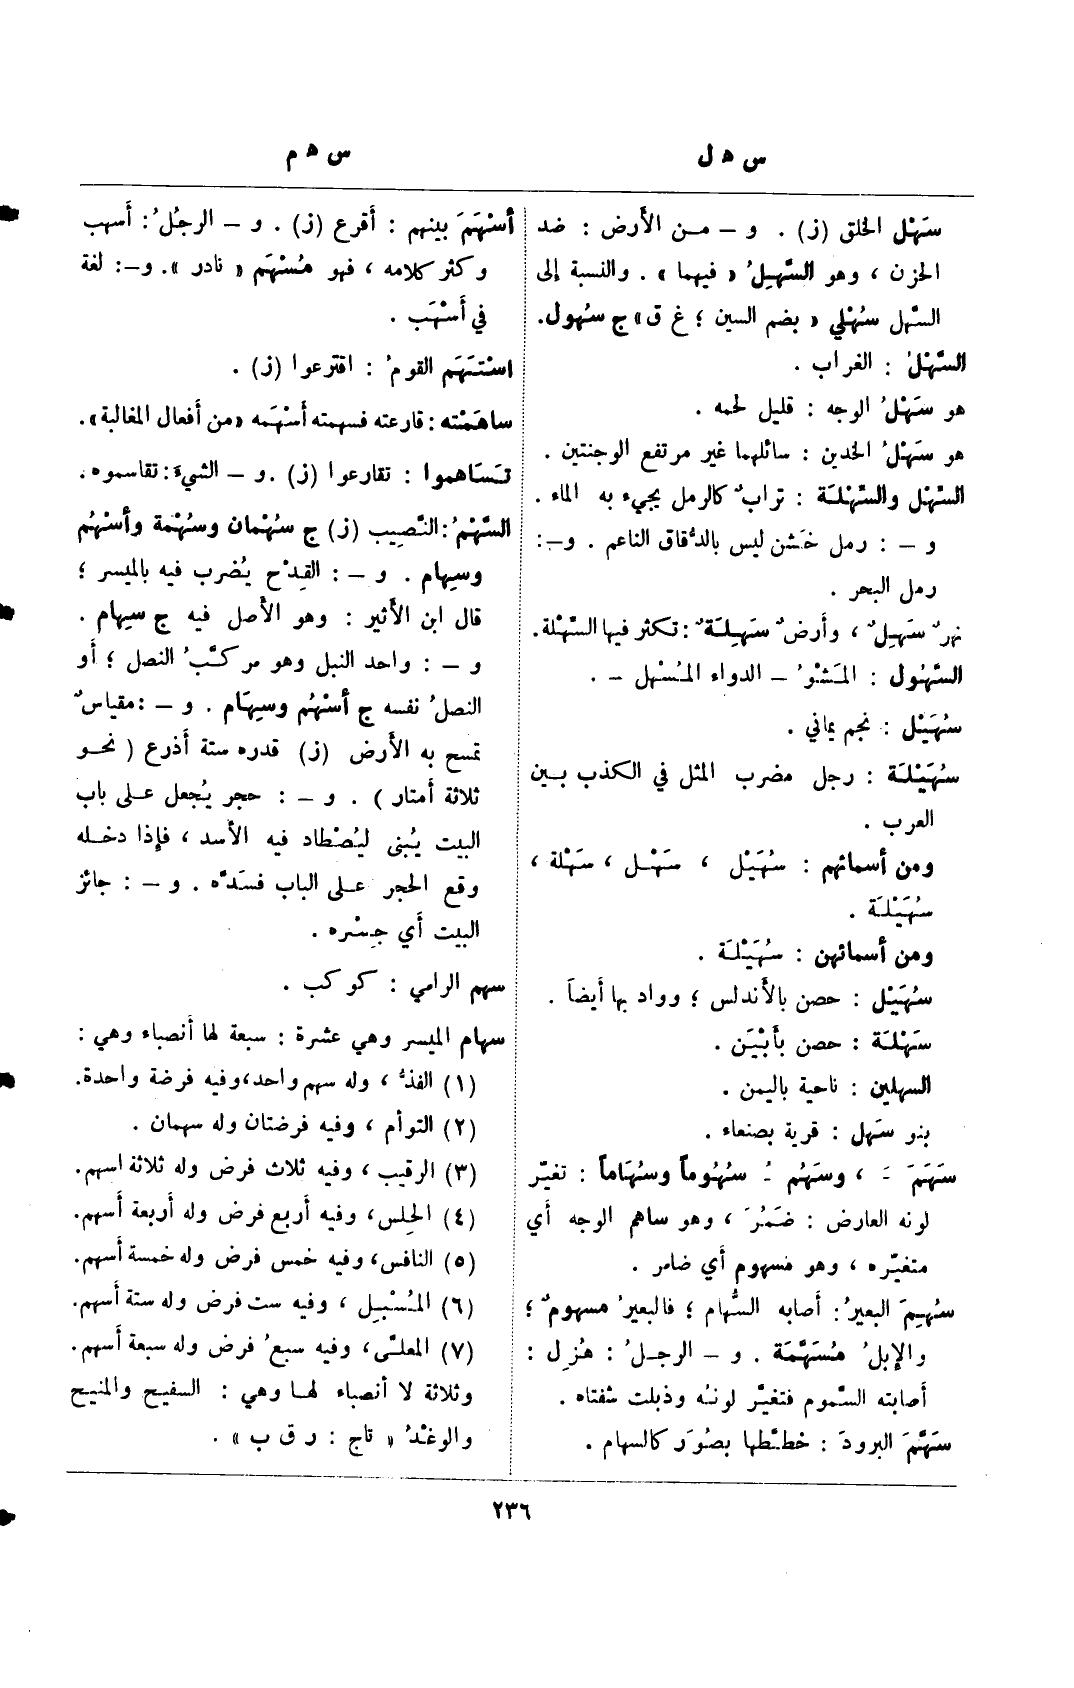 س ه ل
س ه م
سَهْل الخلق (ز) . و – مـن الأَرض : ضد
الحزن ، وهو السَّهِلُ « فيهما » . والنسبة إلى
السَّهل سُهْلي « بضم السين ؛ غ ق» ج سُهول.
السَّهْلُ : الغراب .
هو سَهْلُ الوجه : قليل لحمه .
هو سَهْلُ الخدين : سائلهما غير مرتفع الوجنتين .
السَّهْل والسَّهْلَة : ترابٌ كالرمل يجيء به الماء .
و – : رمل خَشن ليس بالدُّقاق الناعم . و–:
رمل البحر .
نهرٌ سَهِلٌ ، وأَرضٌ سَهِلَةٌ : تكثر فيها السِّهْلة.
السَّهُول : المَشْوُ – الدواء المُسْهل – .
سُهَيْل : نجم يماني .
سُهَيْلَة : رجل مضرب المثل في الكذب بـين
العرب .
ومن أسمائهم : سُهَيْل ، سَهْـل ، سَهْلة ،
سُهَيْلَة .
ومن أسمائهن : سُهَيْلَة .
سُهَيْل : حصن بالأَندلس ؛ وواد بها أَيضاً .
سَهْلَة : حصن بأَبْيَن .
السهلين : ناحية باليمن .
بنو سَهل : قرية بصنعاء .
سَهَمَ –َ ، وسَهُم –ُ سُهُوماً وسُهَاماً : تغيّر
لونه العارض : ضَمُرَ ، وهو ساهم الوجه أَي
متغيّره ، وهو مسهوم أَي ضامر .
سُهِمَ البعيرُ : أَصابه السُّهام ؛ فالبعيرُ مسهومٌ ؛
والإِبلُ مُسَهَّمَة . و – الرجـلُ : هُزِل :
أَصابته السَّموم فتغيَّر لونُه وذبلت شفتاه .
سَهَّمَ البرودَ : خطَّطها بصُوَر كالسهام .
أَسْهَمَ بينهم : أَقرع (ز) . و – الرجلُ : أَسهب
وكثر كلامه ، فهو مُسْهَم « نادر ». و–: لغة
في أَسْهَب .
اسْتَهَم القومُ : اقترعوا (ز) .
ساهَمْته : قارعته فسهمته أَسْهَمه «من أفعال المغالبة».
تَسَاهموا : تقارعوا (ز) .و – الشيءَ: تقاسموه.
السَّهْمُ : النَّصِيب (ز) ج سُهْمان وسُهْمة وأَسْهُم
وسِهام . و – : القِدْح يُضرب فيه بالميسر ؛
قال ابن الأَثير : وهو الأَصل فيه ج سِهام .
و – : واحد النبل وهو مركَّبُ النصل ؛ أَو
النصلُ نفسه ج أَسْهُم وسِهَام . و – :مقياسٌ
تمسح به الأَرض (ز) قدره ستة أَذرع ( نحـو
ثلاثة أَمتار ) . و – : حجر يُجعل عـلى باب
البيت يُبنى ليُصْطاد فيه الأَسد ، فإِذا دخـله
وقع الحجر عـلى الباب فسَدَّه . و – : جائز
البيت أَي جِسْره .
سهم الرامي : كوكب .
سهام الميسر وهي عشرة : سبعة لها أَنصباء وهي :
(١) الفذُّ ، وله سهم واحد،وفيه فرضة واحدة.
(٢) التوأَم ، وفيه فرضتان وله سهمان .
(٣) الرقيب ، وفيه ثلاث فرض وله ثلاثة اسهم.
(٤) الحِلس، وفيه أَربع فرض وله أَربعة أَسهم.
(٥) النافس، وفيه خمس فرض وله خمسة أَسهم.
(٦) المُسْبِل ، وفيه ست فرض وله ستة أَسهم.
(٧) المعلَّى، وفيه سبعُ فرض وله سبعة أَسهم.
وثلاثة لا أَنصباء لهـا وهي : السفيح والمنيح
والوغْدُ « تاج : ر ق ب » .
٢٣٦